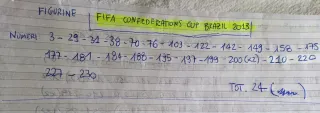 FIGURINE FIFA CONFEDERATIONS CUP BRAZIL 2013
NUMERI 3 - 29 - 31 - 38 - 70 - 76 - 103 - 122 - 142 - 149 - 158 - 175
177 - 181 - 184 - 188 - 195 - 197 - 199 - 200 (x2) - 210 - 220
227 - 230
TOT. 24